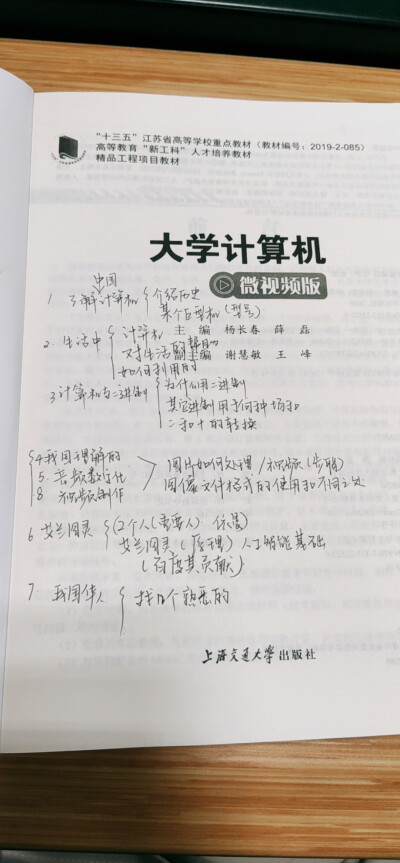 “十三五”江苏省高等学校重点教材（教材编号：2019-2-085）
高等教育“新工科”人才培养教材
精品工程项目教材
大学计算机
微视频版
中国
1. 了解计算机 { 介绍历史
某个巨型机（型号）
2. 生活中 { 计算机
主 编 杨长春 薛 磊
对生活的帮助
副主编 谢慧敏 王 峰
如何利用的
3 计算机与二进制 { 为什么用二进制
其它进制用于何种场和
二和十的转换
4 我国理解的
5. 音频数字化
8 视频制作
图片如何处理/视频（步骤）
图像文件格式的使用和不同之处
6 艾兰图灵 { （2个人（需要人）
艾兰图灵（原理）人工智能基础
（百度其贡献）
7 我国华人 { 找几个熟悉的
上海交通大学出版社